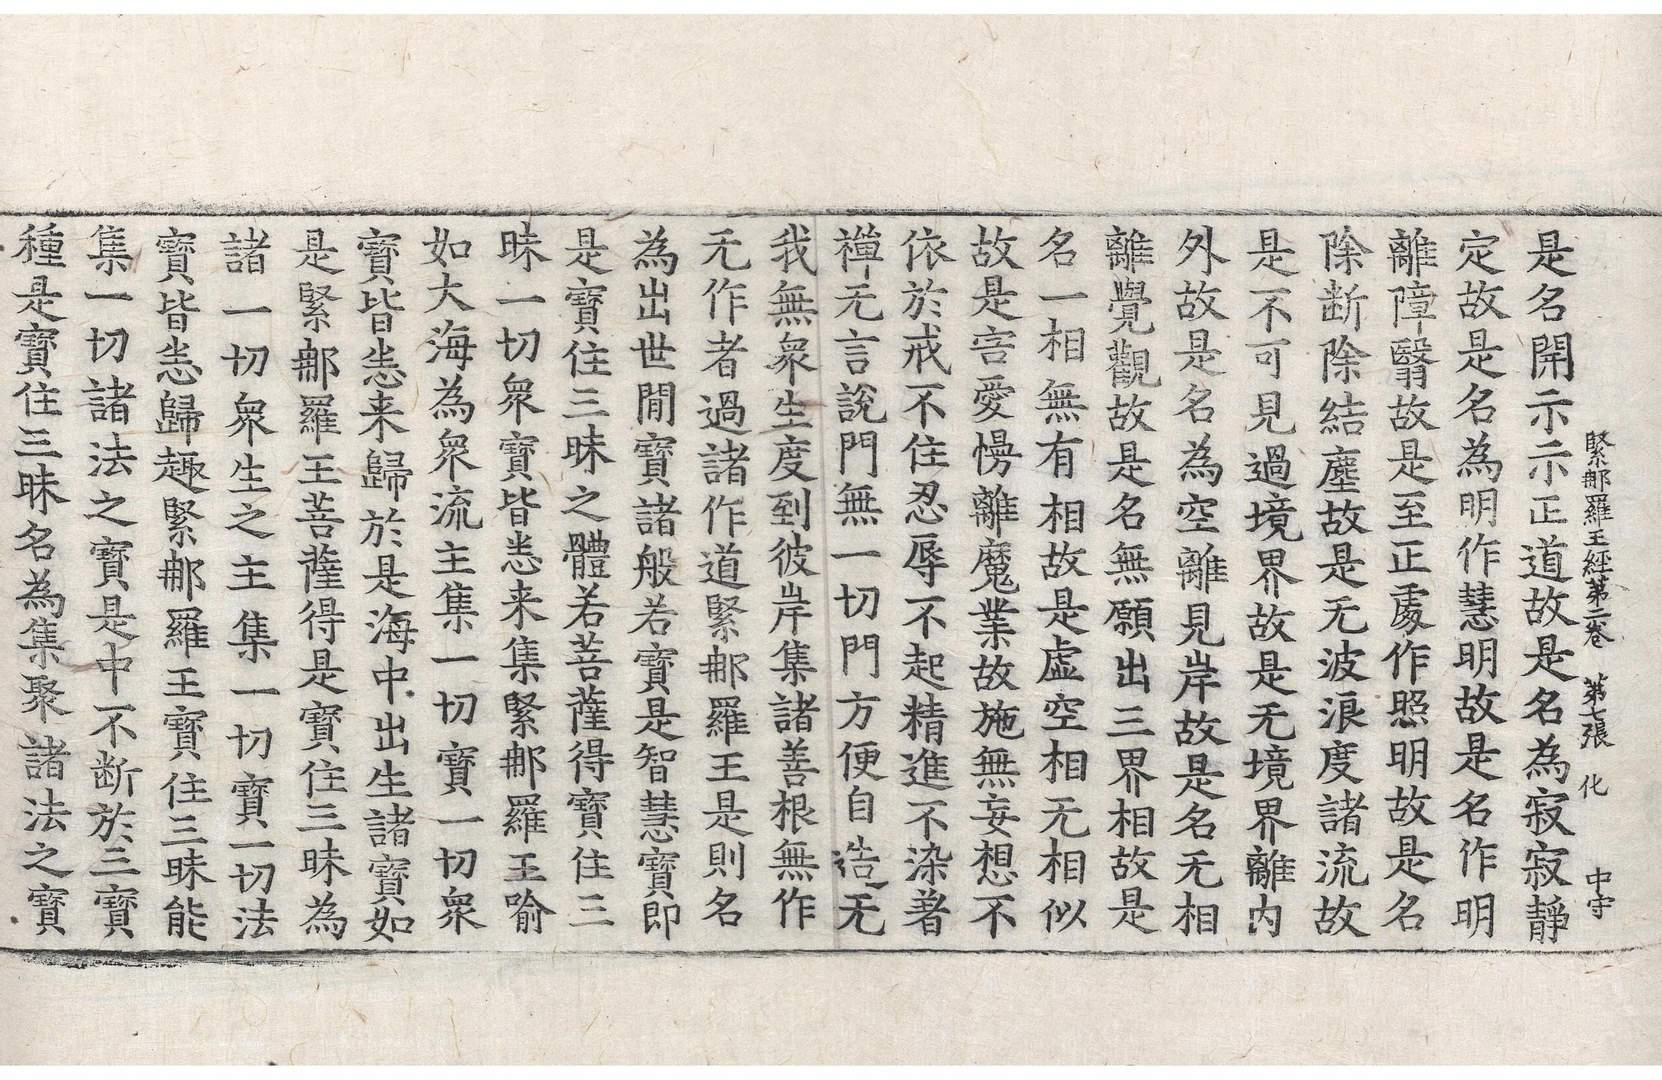 緊那羅王經第二卷　第七張　化　中守
是名開示示正道故是名為寂寂靜
定故是名為明作慧明故是名作明
離障翳故是至正處作照明故是名
除断除結塵故是无波浪度諸流故
是不可見過境界故是无境界離内
外故是名為空離見岸故是名无相
離覺觀故是名無願出三界相故是
名一相無有相故是虚空相无相似
故是害愛慢離魔業故施無妄想不
依於戒不住忍辱不起精進不染著
禪无言說門無一切門方便自造无
我無衆生度到彼岸集諸善根無作
无作者過諸作道緊那羅王是則名
為出世間寶諸般若寶是智慧寶即
是寶住三昧之體若菩薩得寶住三
昧一切衆寶皆悉来集緊那羅王喻
如大海為衆流主集一切寶一切衆
寶皆悉来歸於是海中出生諸寶如
是緊那羅王菩薩得是寶住三昧為
諸一切衆生之主集一切寶一切法
寶皆悉歸趣緊那羅王寶住三昧能
集一切諸法之寶是中不断於三寶
種是寶住三昧名為集聚諸法之寶